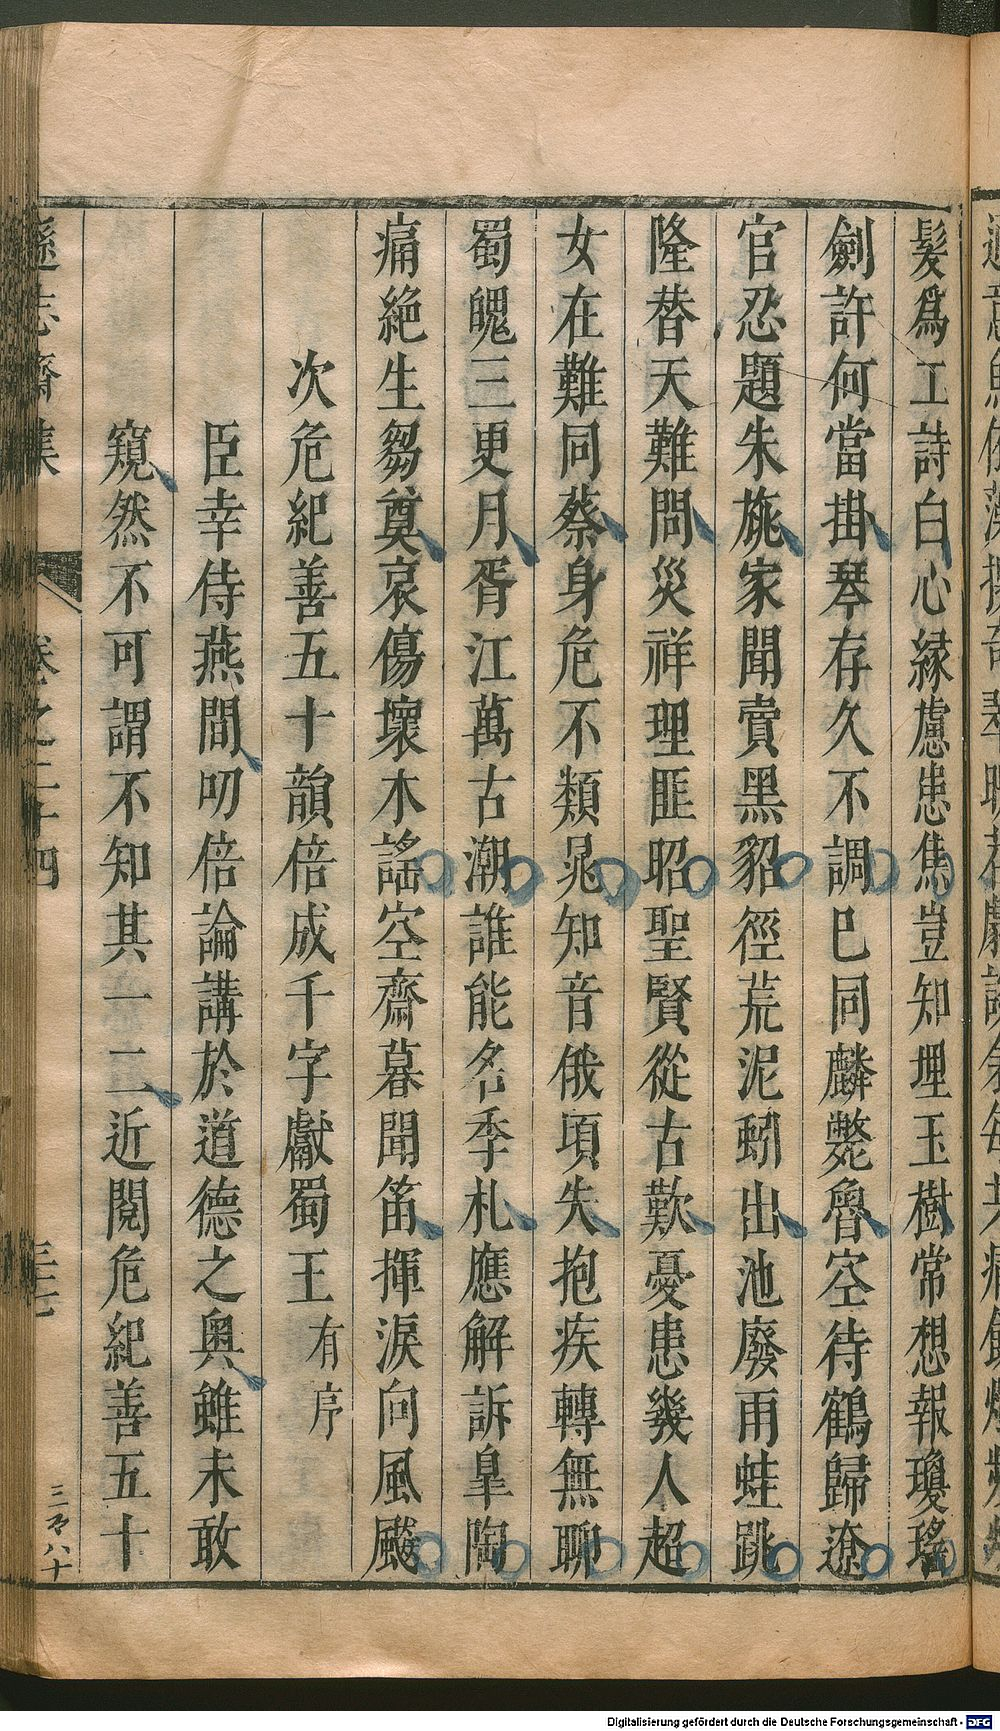 髮爲工詩白心緣慮患焦豈知埋玉樹常想報瓊瑤
劍許何當掛琴存久不調巳同麟斃魯空待鶴歸遼
官忍題朱旐家聞賣黑貂徑荒泥蚓出池廢雨蛙跳
隆替天難問災祥理匪昭聖賢從古歎憂患幾人超
女在難同蔡身危不類晁知音俄頃失抱疾轉無聊
蜀魄三更月胥江萬古潮誰能名季札應解訴臯陶
痛絶生芻奠哀傷壞木謠空齋暮聞笛揮淚向風飈
次危紀善五十韻倍成千字獻蜀王有序
臣幸侍燕間叨倍論講於道德之奧雖未敢
窺然不可謂不知其一二近閱危紀善五十
遜志齋集 卷之二十四 三十七
Digitalisierung gefördert durch die Deutsche Forschungsgemeinschaft - DFG